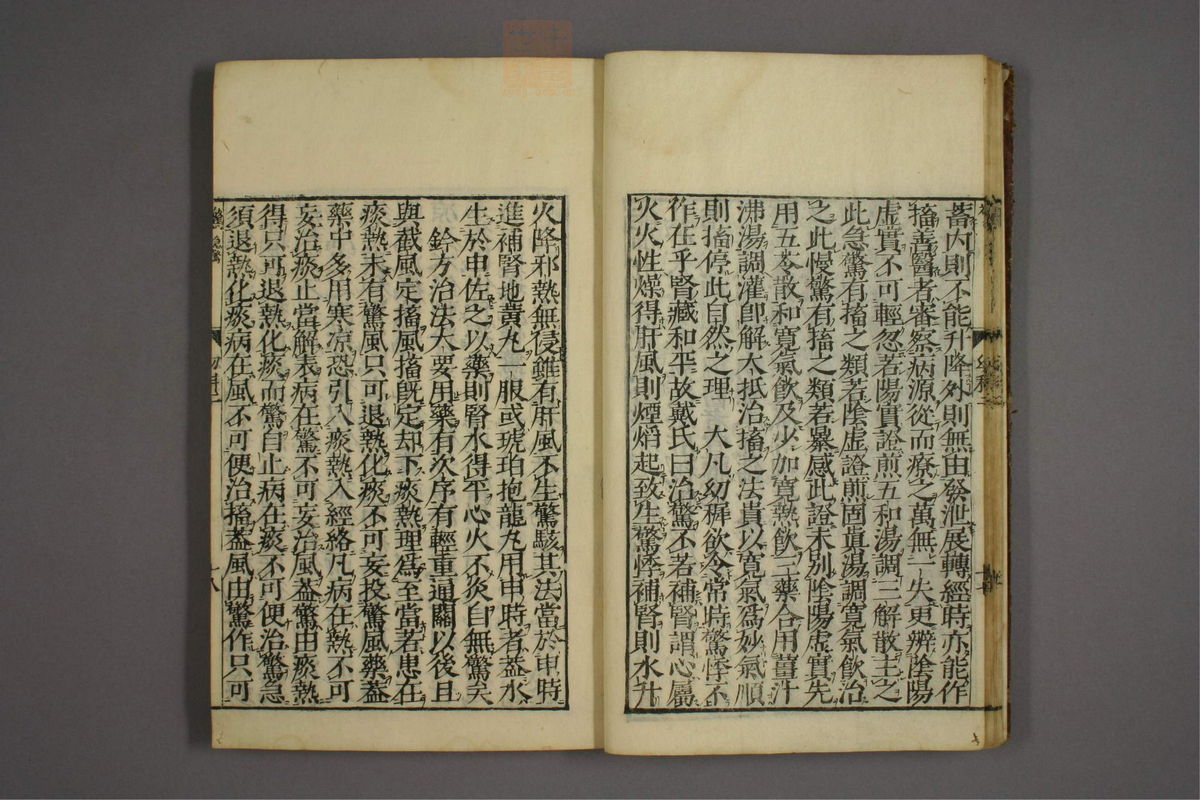 蓄内則不能升降外則無由發泄展轉經時亦能作
搐善醫者審察病源從而療之萬無一失更辨陰陽
虚實不可輕忽若陽實證煎五和湯調三解散主之
此急驚有搐之類若陰虚證煎固眞湯調寛氣飲治
之此慢驚有搐之類若㬥感此證未別陰陽虚實先
用五苓散和寛氣飲及少加寛熱飲三藥合用薑汁
沸湯調灌即解大抵治搐之法貴以寛氣爲妙氣順
則搐停此自然之理　大凡幼稚欲令常時驚悸不
作在乎腎藏和平故戴氏曰治驚不若補腎謂心屬
火火性燥得肝風則煙焰起致生驚悸補腎則水升
火降邪熱無侵雖有肝風不生驚駭其法當於申時
進補腎地黄丸一服或琥珀抱龍丸用申時者葢水
生於申佐之以藥則腎水得平心火不炎自無驚矣
鈐方治法大要用藥有次序有輕重通關以後且
與截風定搐風搐旣定却下痰熱理爲至當若患在
痰熱未有驚風只可退熱化痰不可妄投驚風藥葢
藥中多用寒凉恐引入痰熱入經絡凡病在熱不可
妄治痰止當解表病在驚不可妄治風葢驚由痰熱
得只可退熱化痰而驚自止病在痰不可便治驚急
須退熱化痰病在風不可便治搐葢風由驚作只可